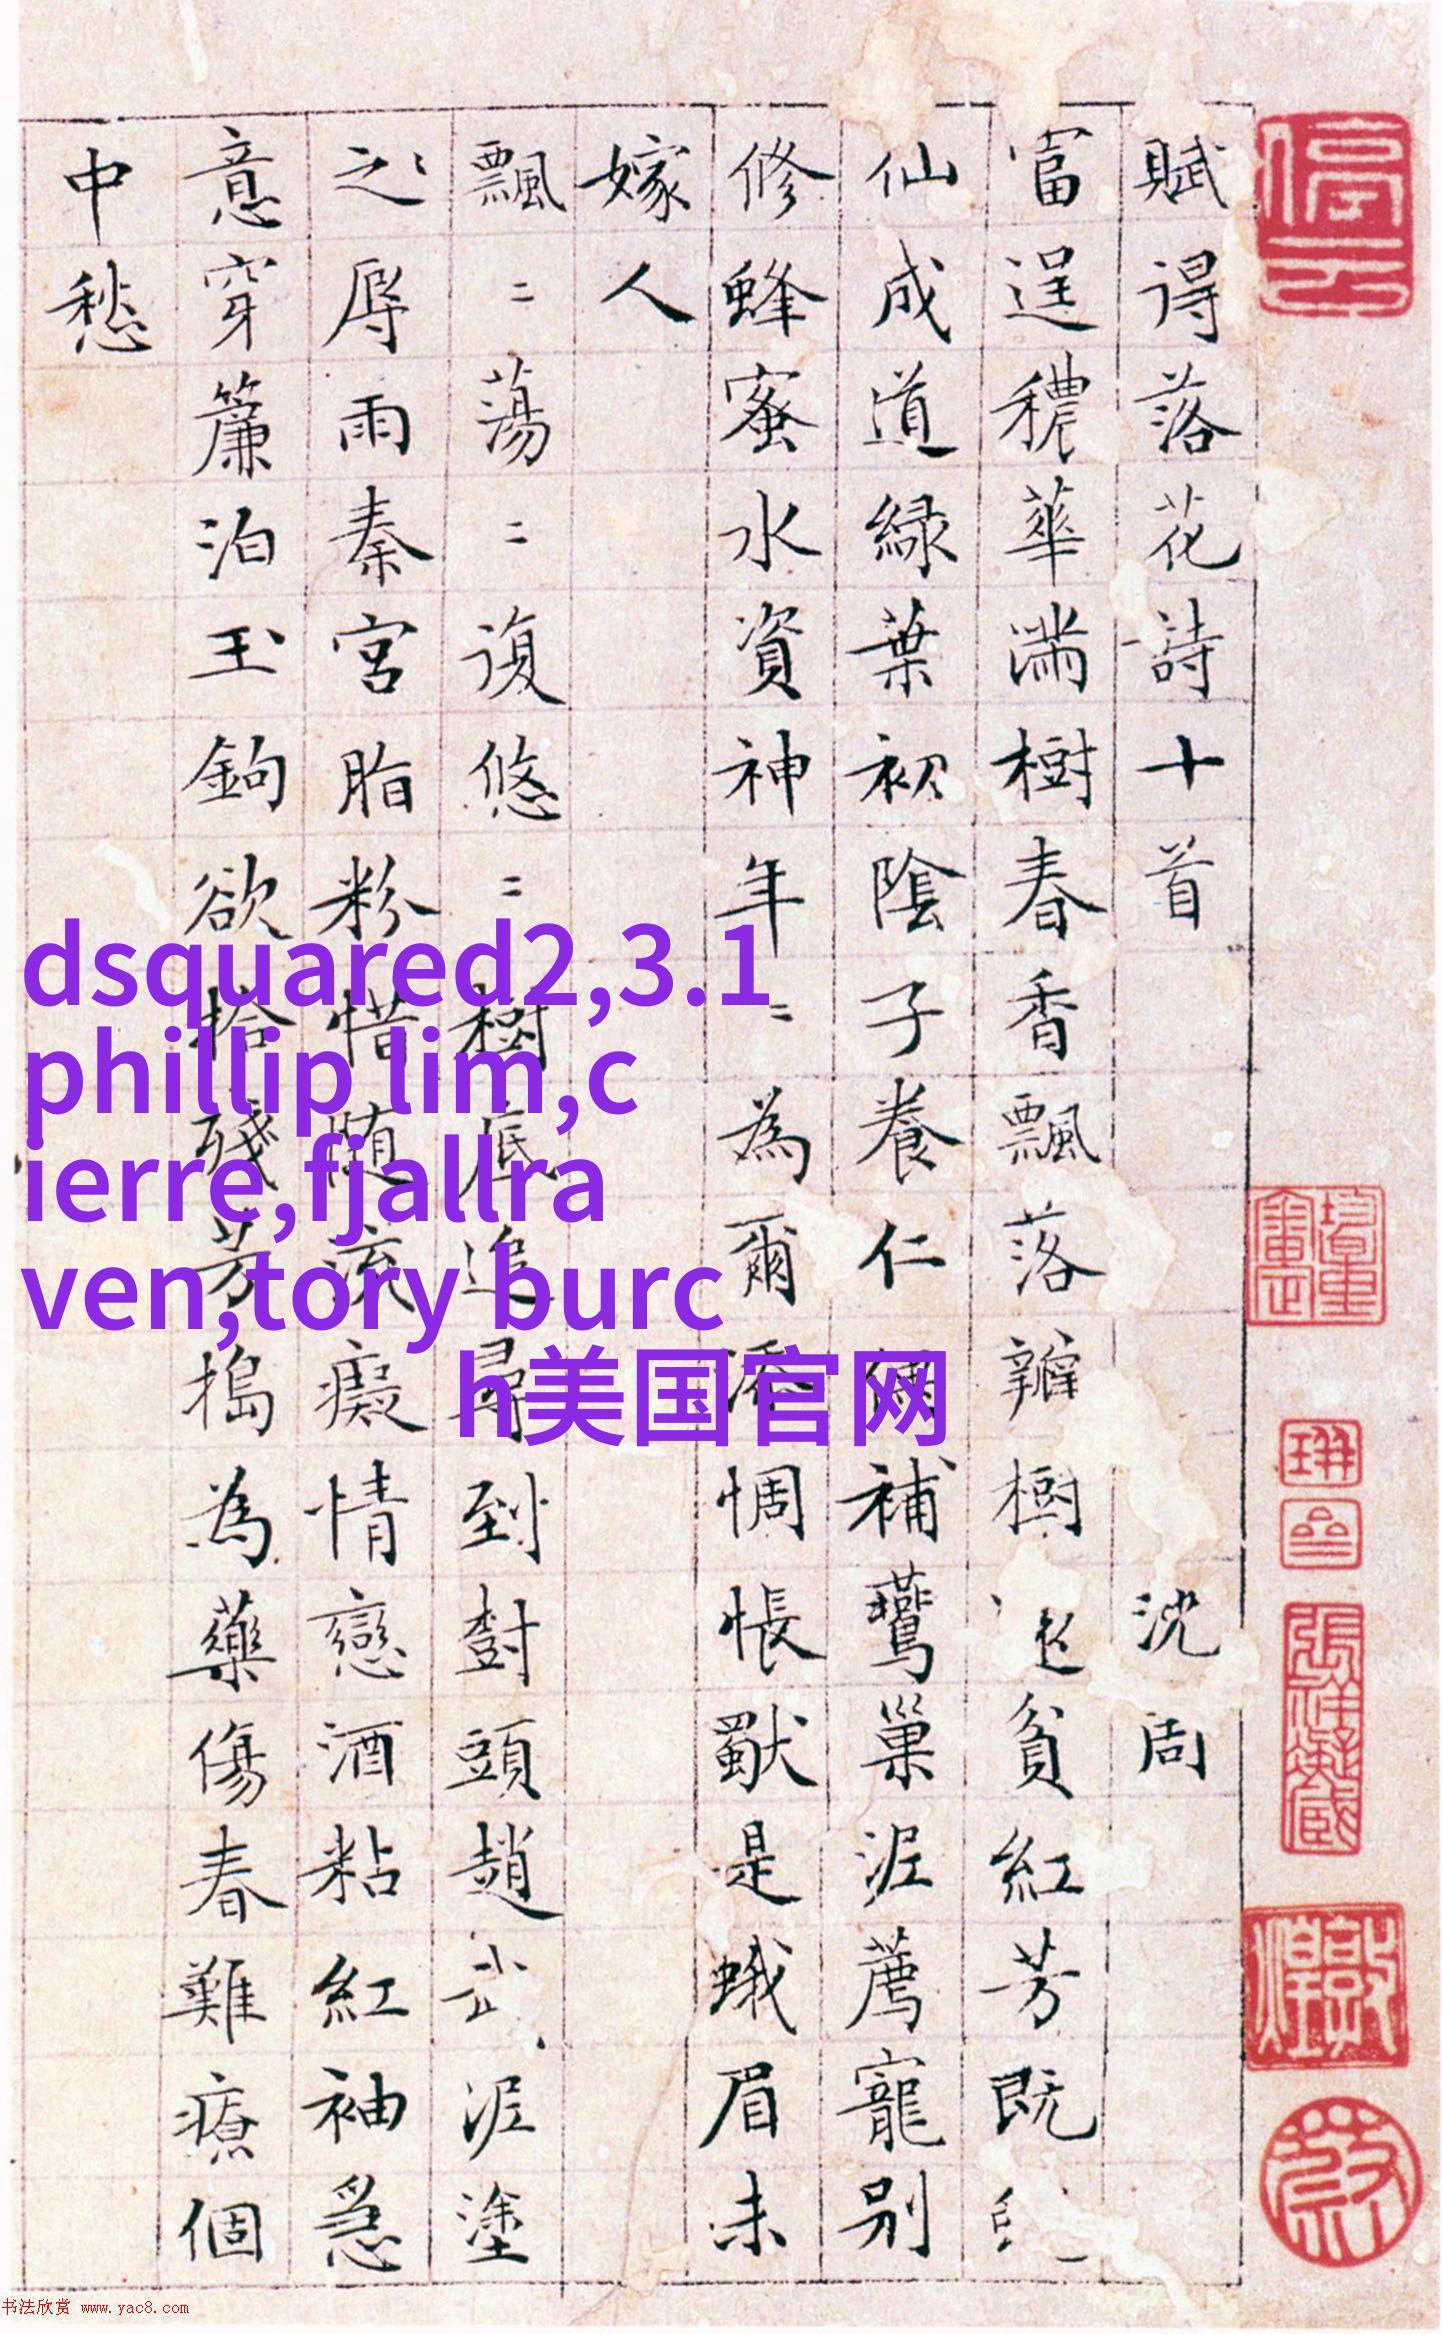 賦得落花詩十首 沈周
富逞穠華滿樹春香飄落瓣樹貧紅芳既
仙成道緑葉初陰子養仁偶補鷰巢泥薦寵別
修蜂蜜水資神年〻為爾添惆悵獨是蛾眉未
嫁人
飄〻蕩〻復悠〻樹底追尋到樹頭趙武泥塗
之辱雨秦宮脂粉惜随流癡情戀酒粘紅袖急
意穿簾泊玉鉤欲拾殘芳搗為藥傷春難療個
中愁
停云
dsquared2,3.1
phillip lim,c
ierre,fjallra
ven,tory burc
h美国官网
书法欣赏 www.yac8.com